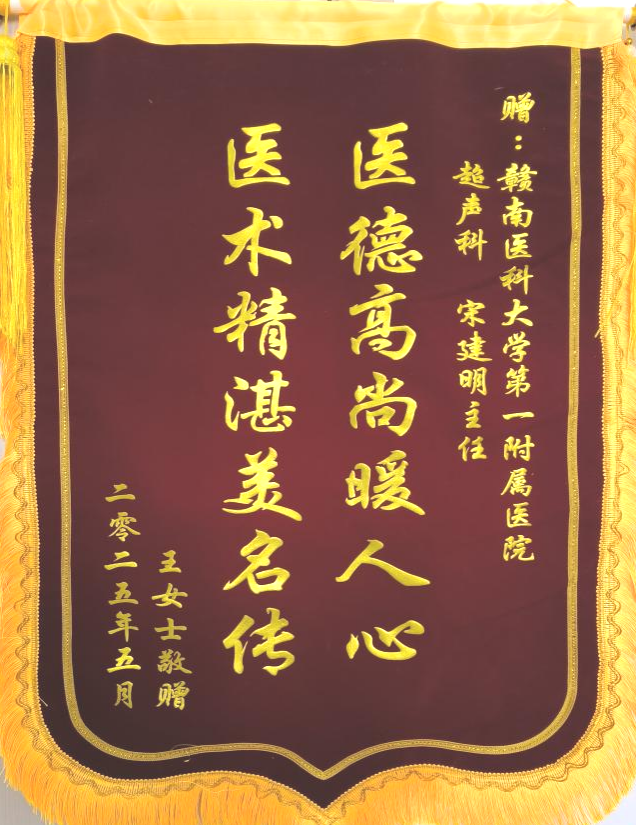 赠：赣南医科大学第一附属医院
超声科 宋建明主任
医德高尚暖人心
医术精湛美名传
王女士敬赠
二零二五年五月